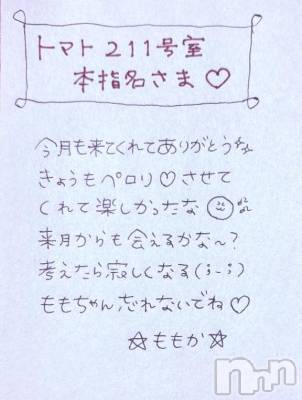 トマト 211号室
本指名さま♡
今月も来てくれてありがとう
きょうもペロリ♡させて
くれて楽しかったな
来月からも会えるかな〜?
考えたら寂しくなる(;-;)
ももちゃん忘れないでね♡
☆ももか☆